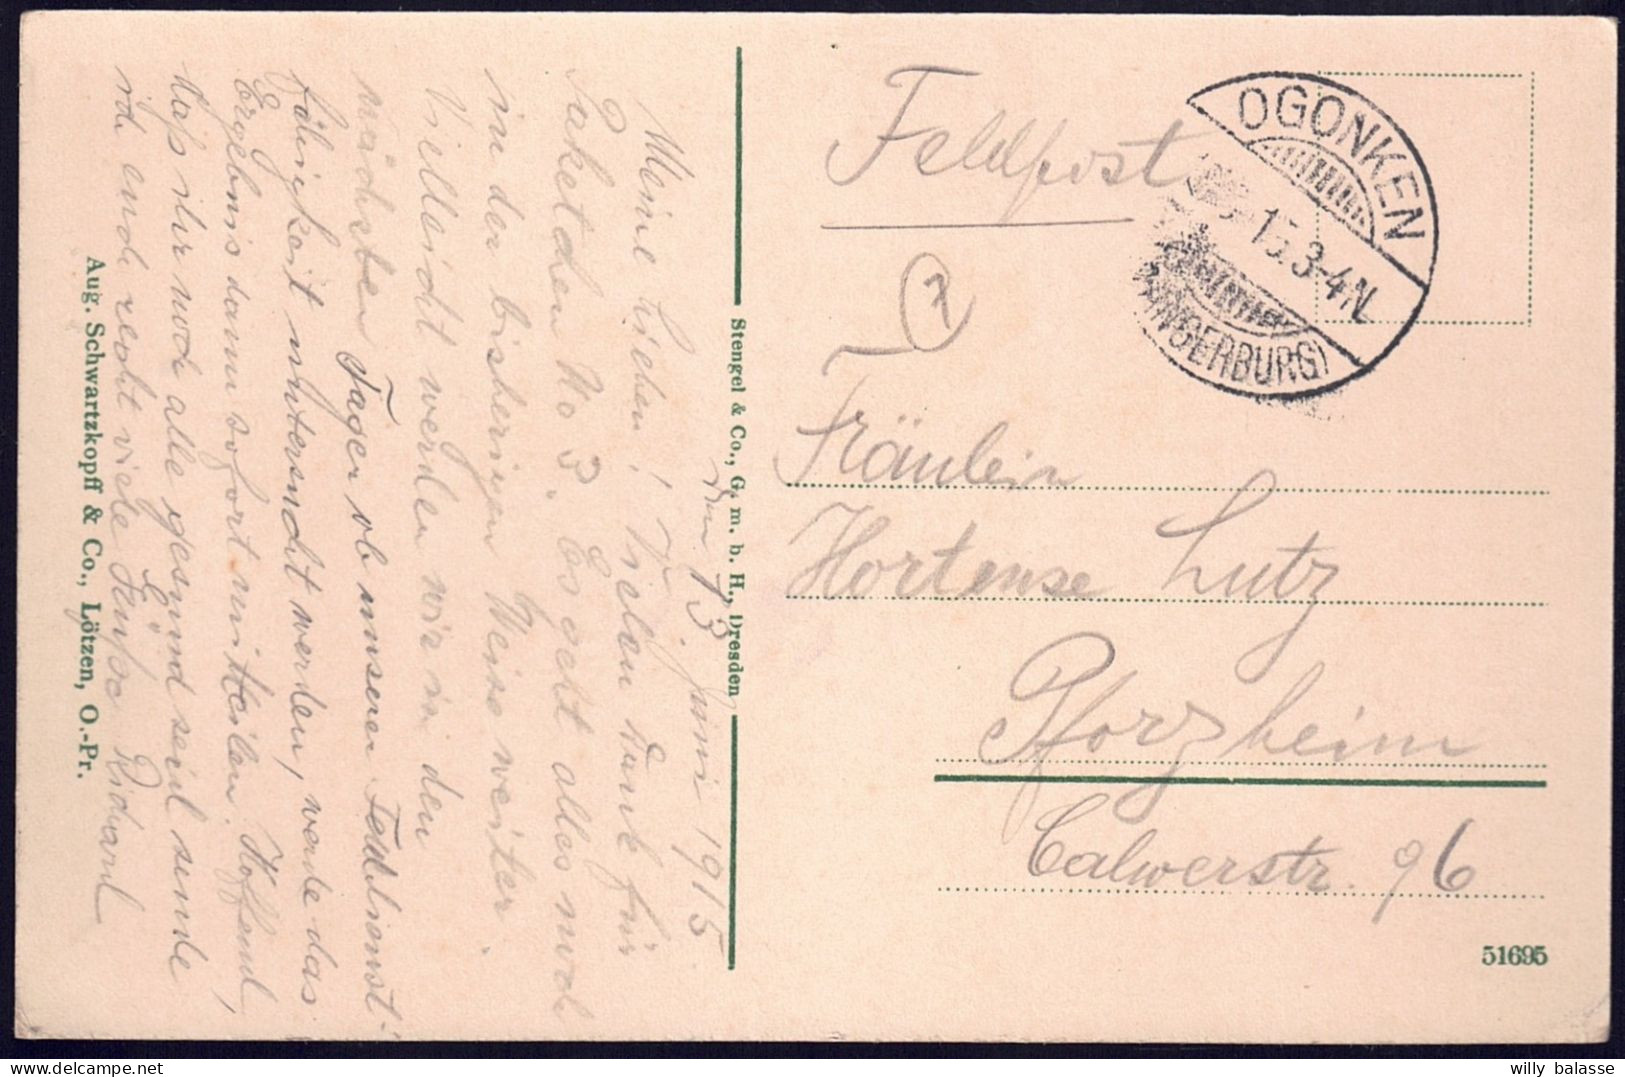 Am 13. Juni 1915.
Meine Lieben! Vielen Dank für
Paketchen No 3. Es geht alles noch
in der bisherigen Weise weiter.
Vielleicht werden wir in den
nächsten Tagen ob unserer Felddienst-
fähigkeit untersucht werden, werde das
Ergebnis dann sofort mitteilen. Hoffend,
daß ihr noch alle gesund seid sende
ich euch recht viele Grüße Richard
Aug. Schwartzkopff & Co., Lötzen, O.-Pr.
Stengel & Co., G. m. b. H., Dresden
Feldpost
7
OGONKEN
15.3-4N.
(ANGERBURG)
Fräulein
Hortense Lutz
Pforzheim
Calwerstr. 96
51695
willy balasse